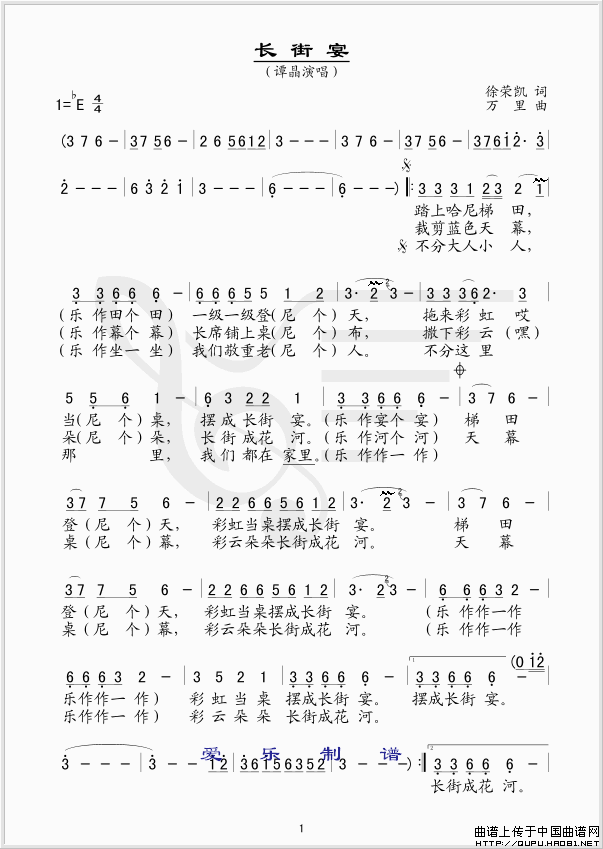 长 街 宴
（谭晶演唱）
1=♭E 4/4
徐荣凯 词
万 里 曲
(3 7 6 - | 3 7 5 6 - | 2 6 5 6 1 2 | 3 - - - | 3 7 6 - | 3 7 5 6 - | 3 7 6 1 2· 3 |
2 - - - | 6 3 2 1 | 3 - - - | 6 - - - | 6 - - - ) |: 3 3 3 1 2 3 2 1 |
踏上哈尼梯 田，
裁剪蓝色天 幕，
不分大人小 人，
3 3 6 6 6 - | 6 6 6 5 5 1 2 | 3· 2 3 - | 3 3 3 6 2· 3 |
（乐 作田个 田） 一级一级登（尼 个）天， 拖来彩 虹 哎
（乐 作幕个 幕） 长席铺上桌（尼 个）布， 撒下彩 云（嘿）
（乐 作坐一 坐） 我们敬重老（尼 个）人。 不分这 里
5 5 6 1 - | 6 3 2 2 1 - | 3 3 6 6 6 - | 3 7 6 - |
当（尼 个）桌， 摆 成长街 宴。（乐 作宴个 宴） 梯 田
朵（尼 个）朵， 长 街成花 河。（乐 作河个 河） 天 幕
那 里， 我 们都在 家里。（乐 作作一 作）
3 7 7 5 6 - | 2 2 6 6 5 6 1 2 | 3· 2 3 - | 3 7 6 - |
登（尼 个）天， 彩虹当桌摆成长街 宴。 梯 田
桌（尼 个）幕， 彩云朵朵长街成花 河。 天 幕
3 7 7 5 6 - | 2 2 6 6 5 6 1 2 | 3· 2 3 - | 6 6 6 3 2 |
登（尼 个）天， 彩虹当桌摆成长街 宴。 （乐 作作一作
桌（尼 个）幕， 彩云朵朵长街成花 河。 （乐 作作一作
6 6 6 3 2 - | 3 5 2 1 | 3 3 6 6 6 - | 1. 3 3 6 6 6 - (0 1 2 |
乐作作一 作） 彩 虹 当 桌 摆成长街 宴。 摆成长街 宴。
乐作作一 作） 彩 云 朵 朵 长街成花 河。
3 - - - | 3 - - 1 2 | 3 6 1 5 6 3 5 2 | 3 - - - ) :| 2. 3 3 6 6 6 - |
长街成花 河。
爱 乐 制 谱
1
曲谱上传于中国曲谱网
HTTP://QUPU.HAO81.NET